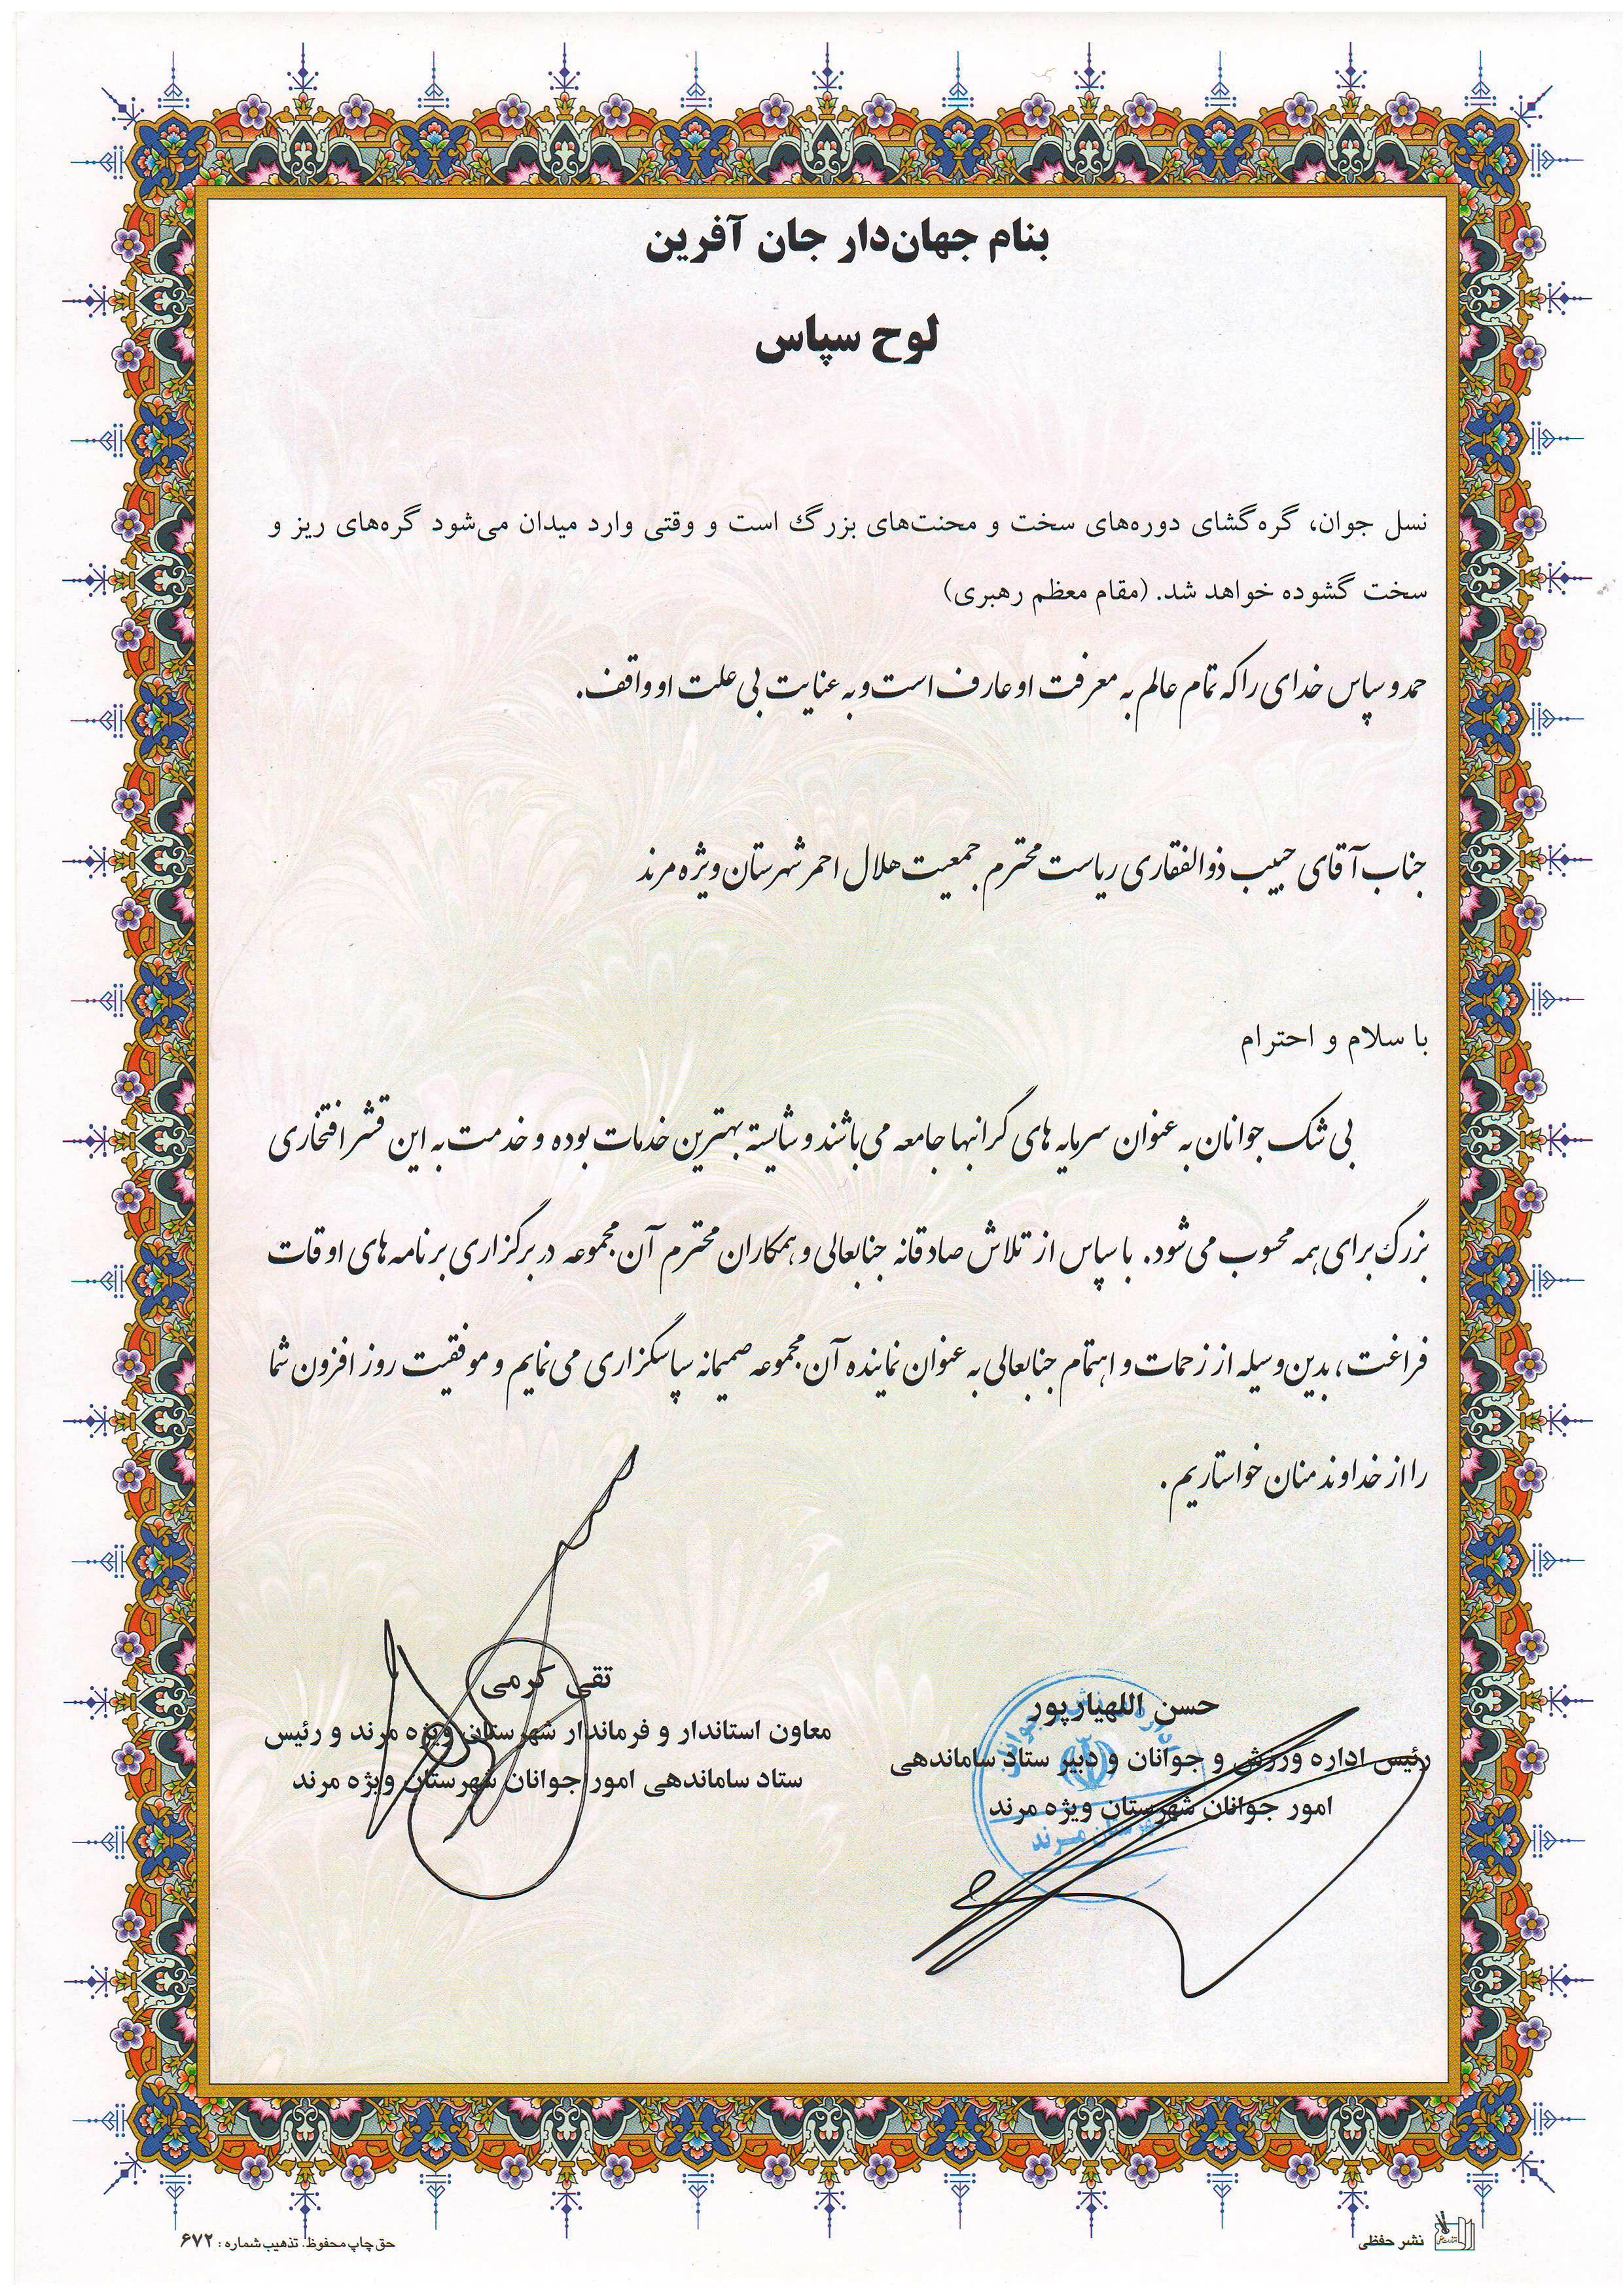 بنام جهان‌دار جان آفرین
لوح سپاس
نسل جوان، گره‌گشای دوره‌های سخت و محنت‌های بزرگ است و وقتی وارد میدان می‌شود گره‌های ریز و
سخت گشوده خواهد شد. (مقام معظم رهبری)
حمد و سپاس خدای را که تمام عالم به معرفت او عارف است و به عنایت بی علت او واقف.
جناب آقای حبیب ذوالفقاری ریاست محترم جمعیت هلال احمر شهرستان ویژه مرند
با سلام و احترام
بی شک جوانان به عنوان سرمایه های گرانبها جامعه می باشند و شایسته بهترین خدمات بوده و خدمت به این قشر افتخاری
بزرگ برای همه محسوب می شود. با سپاس از تلاش صادقانه جنابعالی و همکاران محترم آن مجموعه در برگزاری برنامه های اوقات
فراغت، بدین وسیله از زحمات و اهتمام جنابعالی به عنوان نماینده آن مجموعه صمیمانه سپاسگزاری می نمایم و موفقیت روز افزون شما
را از خداوند منان خواستاریم.
حسن اللهیارپور
رئیس اداره ورزش و جوانان و دبیر ستاد ساماندهی
امور جوانان شهرستان ویژه مرند
تقی کرمی
معاون استاندار و فرماندار شهرستان ویژه مرند و رئیس
ستاد ساماندهی امور جوانان شهرستان ویژه مرند
نشر حفظی
حق چاپ محفوظ. تذهیب شماره : ۶۷۲